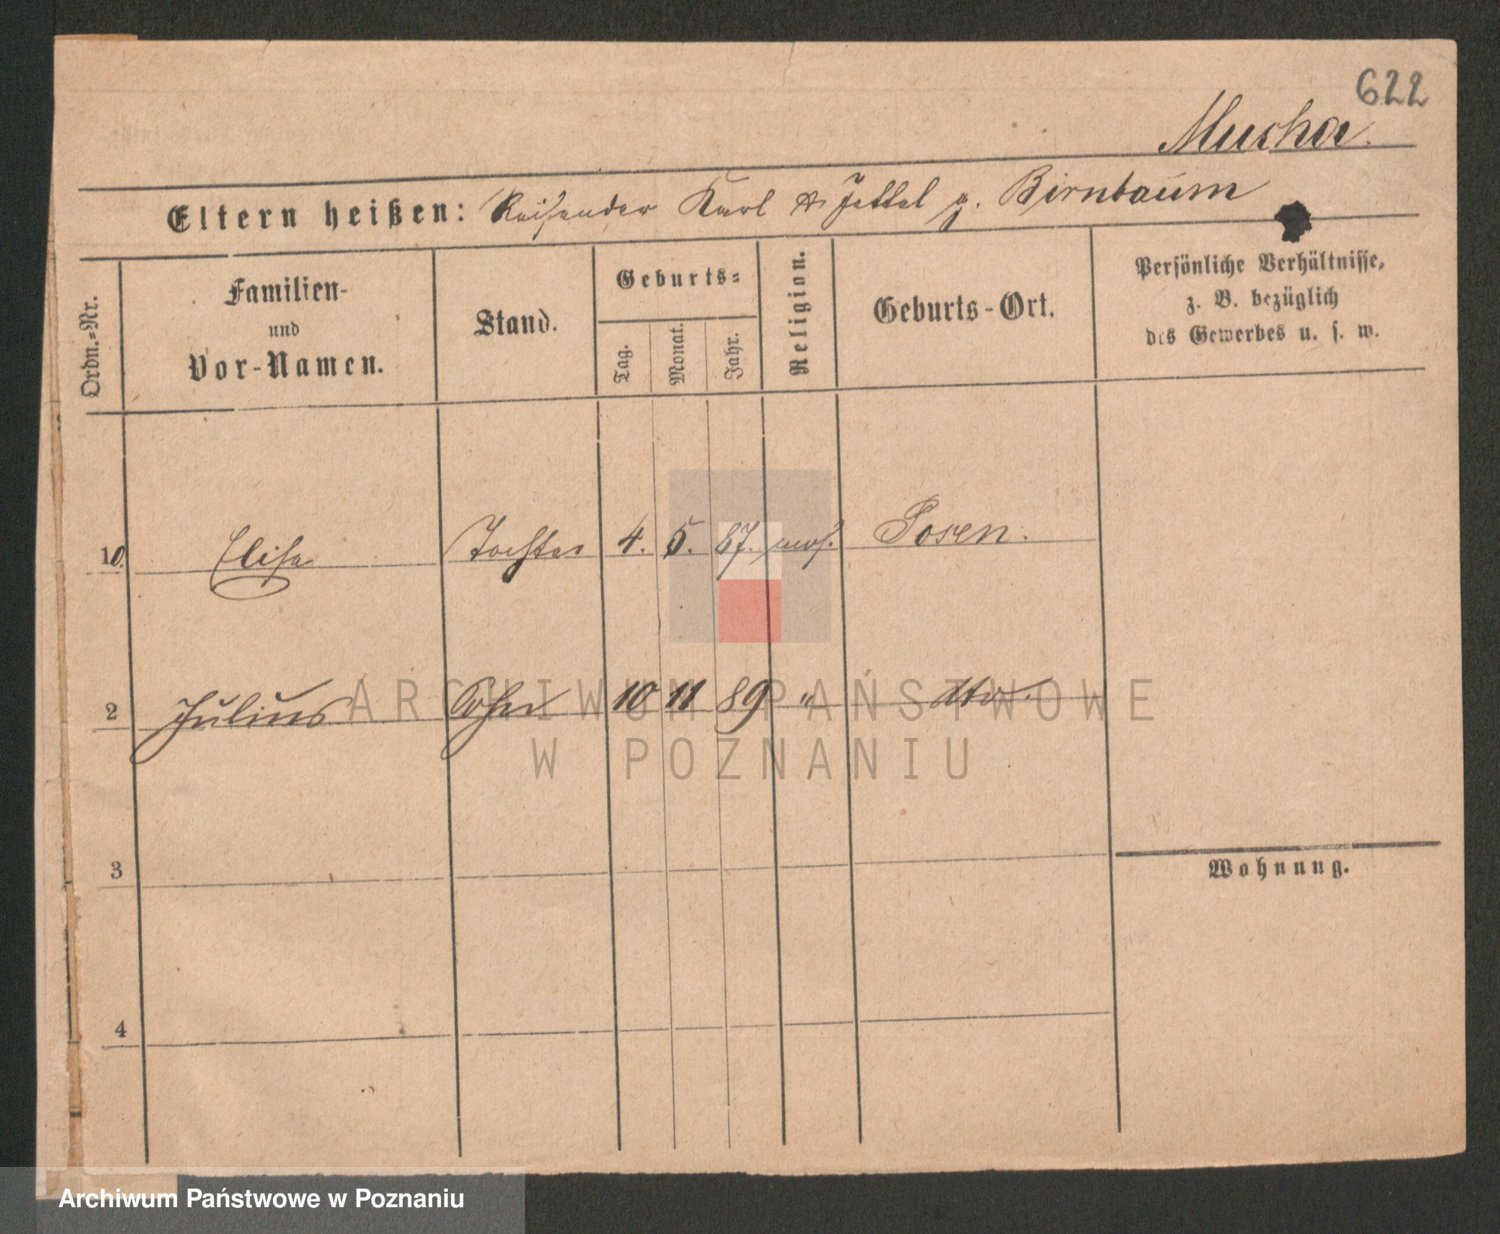 622
Mucha.
Eltern heißen: Reisender Karl & Jettel g. Birnbaum
Ordn.-Nr.
Familien-
und
Vor-Namen.
Stand.
Geburts-
Tag.
Monat.
Jahr.
Religion.
Geburts-Ort.
Persönliche Verhältnisse,
z. B. bezüglich
des Gewerbes u. s. w.
10. Elise Tochter 4. 5. 87. mos. Posen.
2 Julius Sohn 10 11 89 " dto.
ARCHIWUM PAŃSTWOWE
W POZNANIU
3
Wohnung.
4
Archiwum Państwowe w Poznaniu